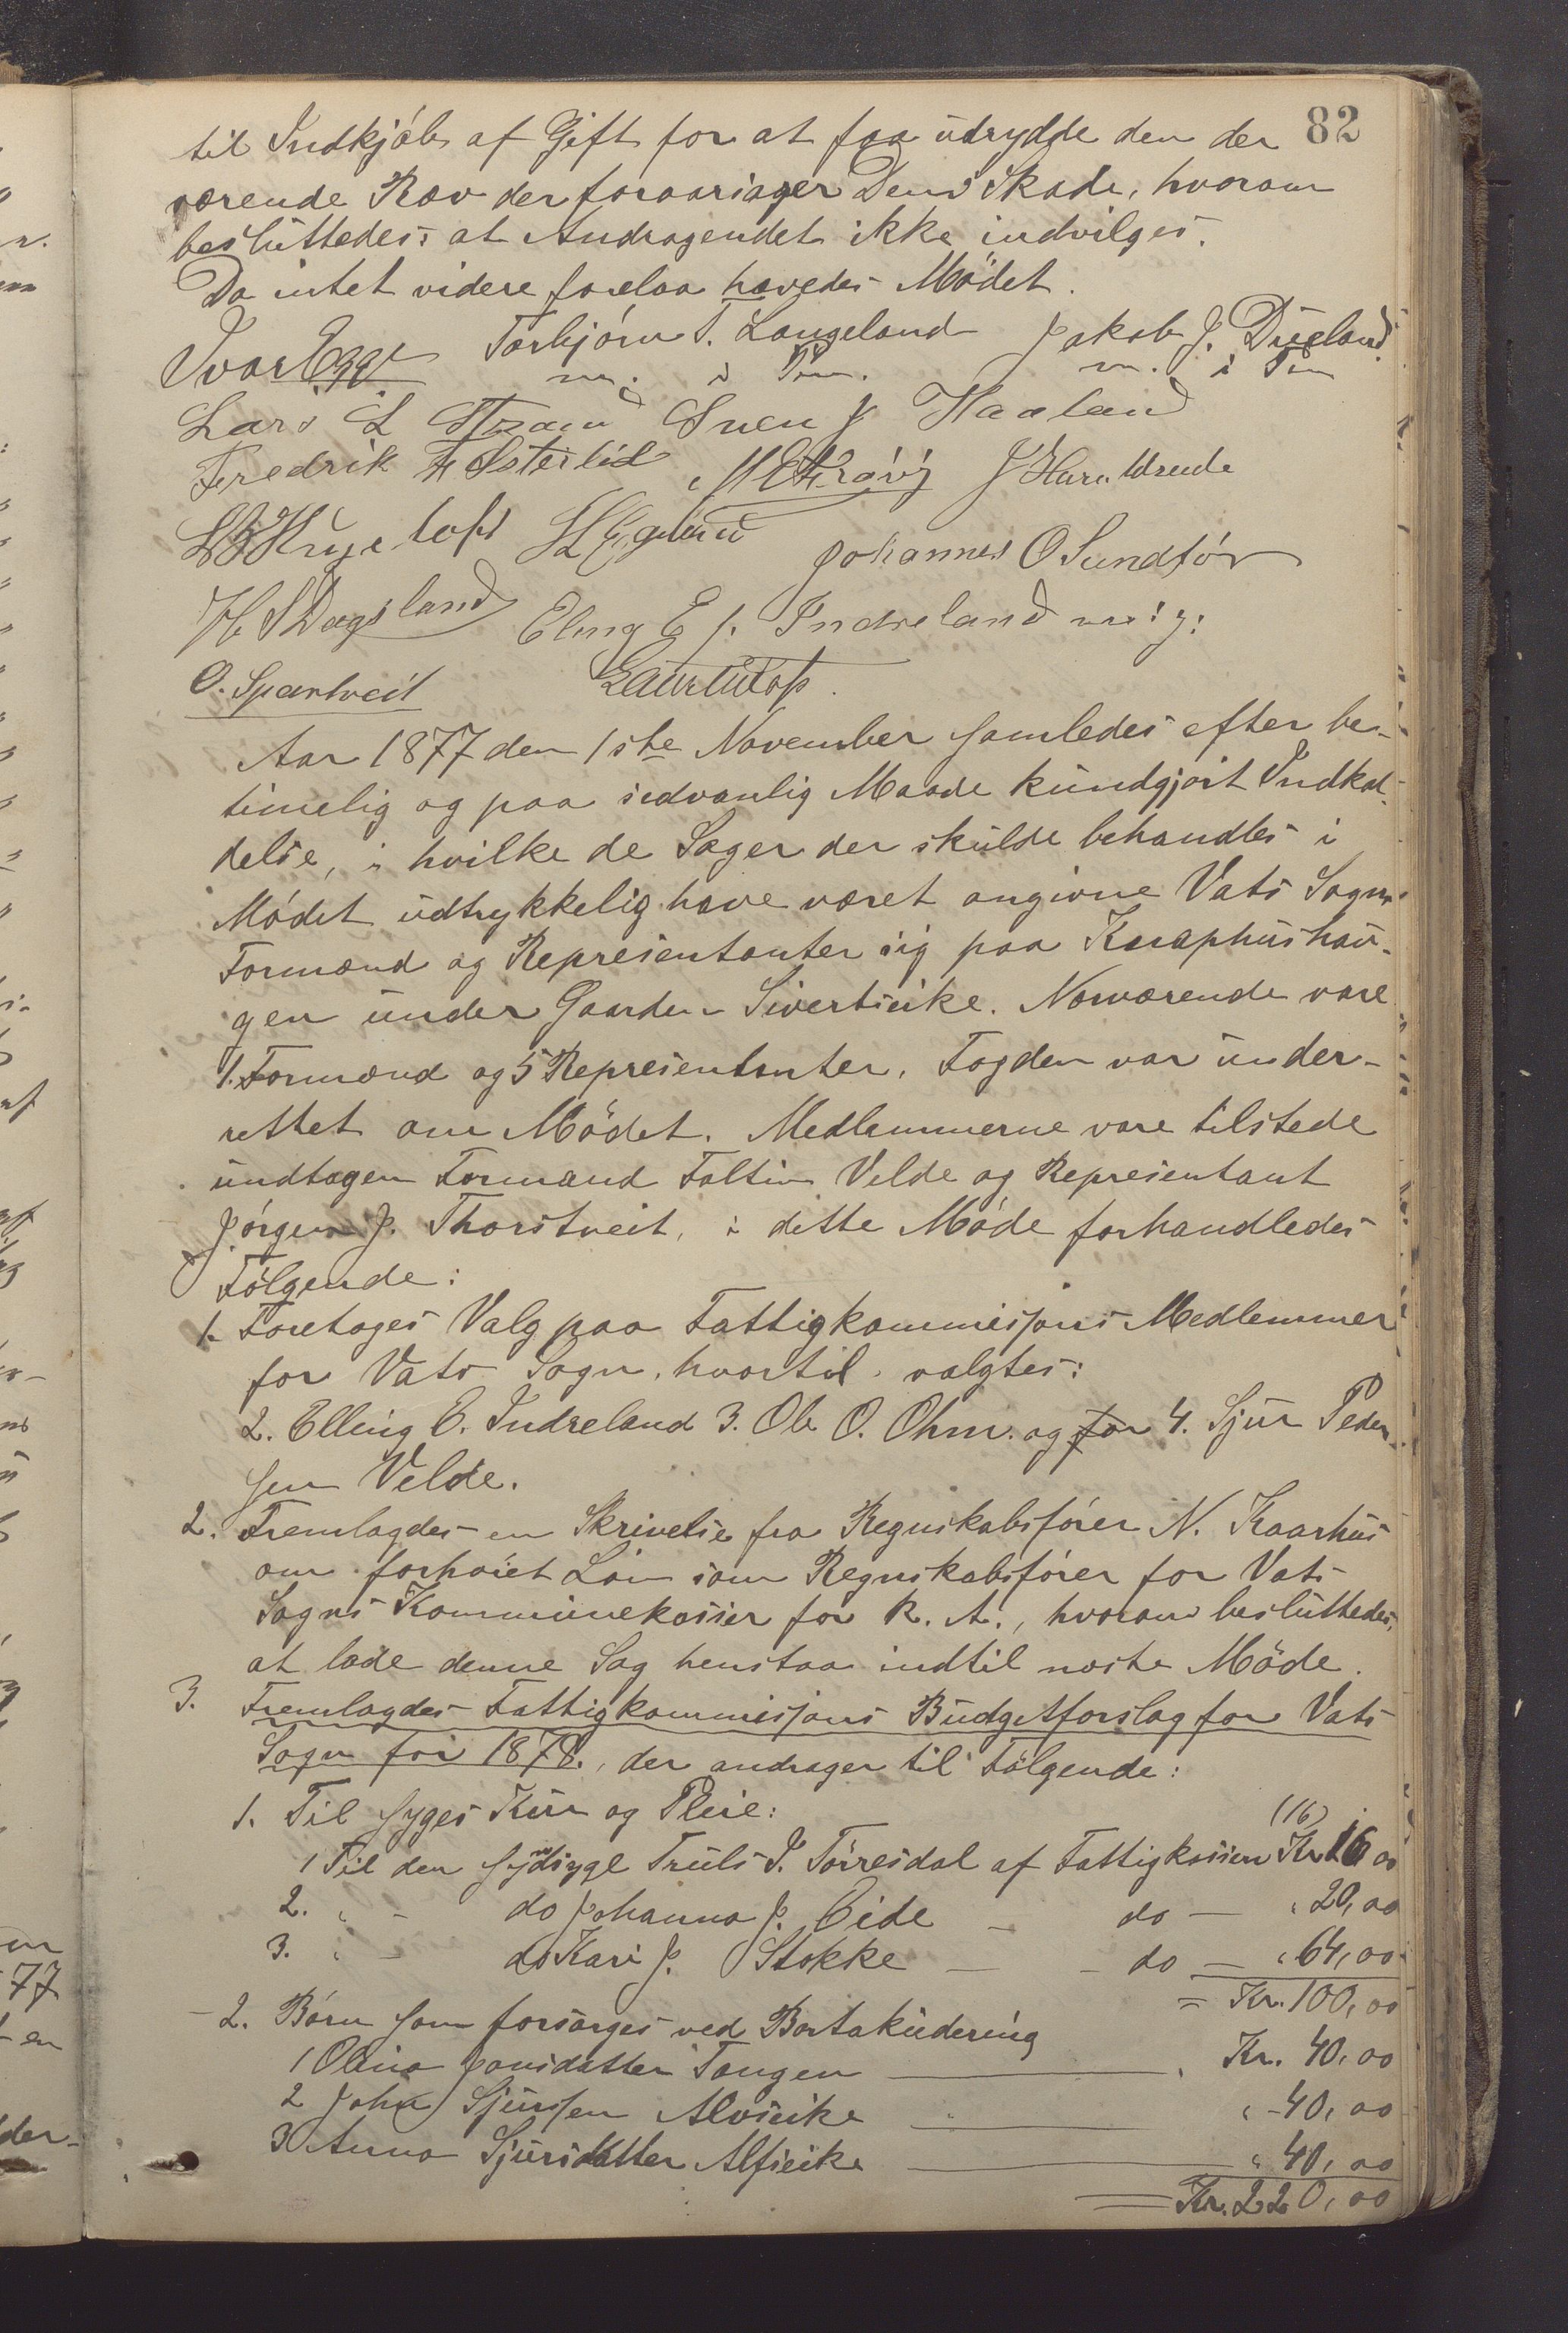 82
til Indkjøb af Gift for at faa udrydde den der
værende Ræv der foraarsager Dem Skade, hvorom
besluttedes at Andragendet ikke indvilges.
Da intet videre forelaa hævedes Mødet.
Ivar Egge Torbjørn T. Langeland Jakob J. Dueland
m. i Pen. m. i Pen
Lars L Strand Sven J Haaland
Fredrik F Østerlid
Johannes O Sundfør
H S Dagsland Eling E J. Indreland
O. Spantveit
Aar 1877 den 1ste November samledes efter be-
timelig og paa sedvanlig Maade kundgjort Indkal-
delse, i hvilke de Sager der skulde behandles i
Mødet udtrykkelig have været angivne Vats Sogns
Formænd og Repræsentanter sig paa Knaphushau-
gen under Gaarden Sivertseike. Nærværende vare
1. Formænd og 5 Repræsentanter. Fogden var under-
rettet om Mødet. Medlemmerne vare tilstede
undtagen Formand Faltin Velde og Repræsentant
Jørgen J. Thorstveit, i dette Møde forhandledes
Følgende:
1. Foretoges Valg paa Fattigkommissions Medlemmer
for Vats Sogn, hvortil valgtes:
2. Elling E. Indreland 3. Ole O. Ohm. og for 4. Sjur Peder-
sen Velde.
2. Fremlagdes en Skrivelse fra Regnskabsfører N. Kaarhus
om forhøiet Løn som Regnskabsfører for Vats
Sogns Kommunekasser for R. A., hvorom besluttedes,
at lade denne Sag henstaa indtil næste Møde.
3. Fremlagdes Fattigkommissions Budgetforslag for Vats
Sogn for 1878., der andrager til Følgende:
1. Til syges Kur og Pleie:
(16)
1 Til den syndsyge Truls I. Tørresdal af Fattigkassen Kr 16 00
2. " - do Johanna J. Eide - do - " 20,00
3. " - do Kari J. Stokke - - do - " 64,00
= Kr. 100,00
2. Børn som forsørges ved Bortakudering
1 Olina Jonsdatter Tangen Kr. 40,00
2 John Sjursen Alvseike " - 40,00
3 Anna Sjursdatter Alfseike " 40,00
Kr. 220,00